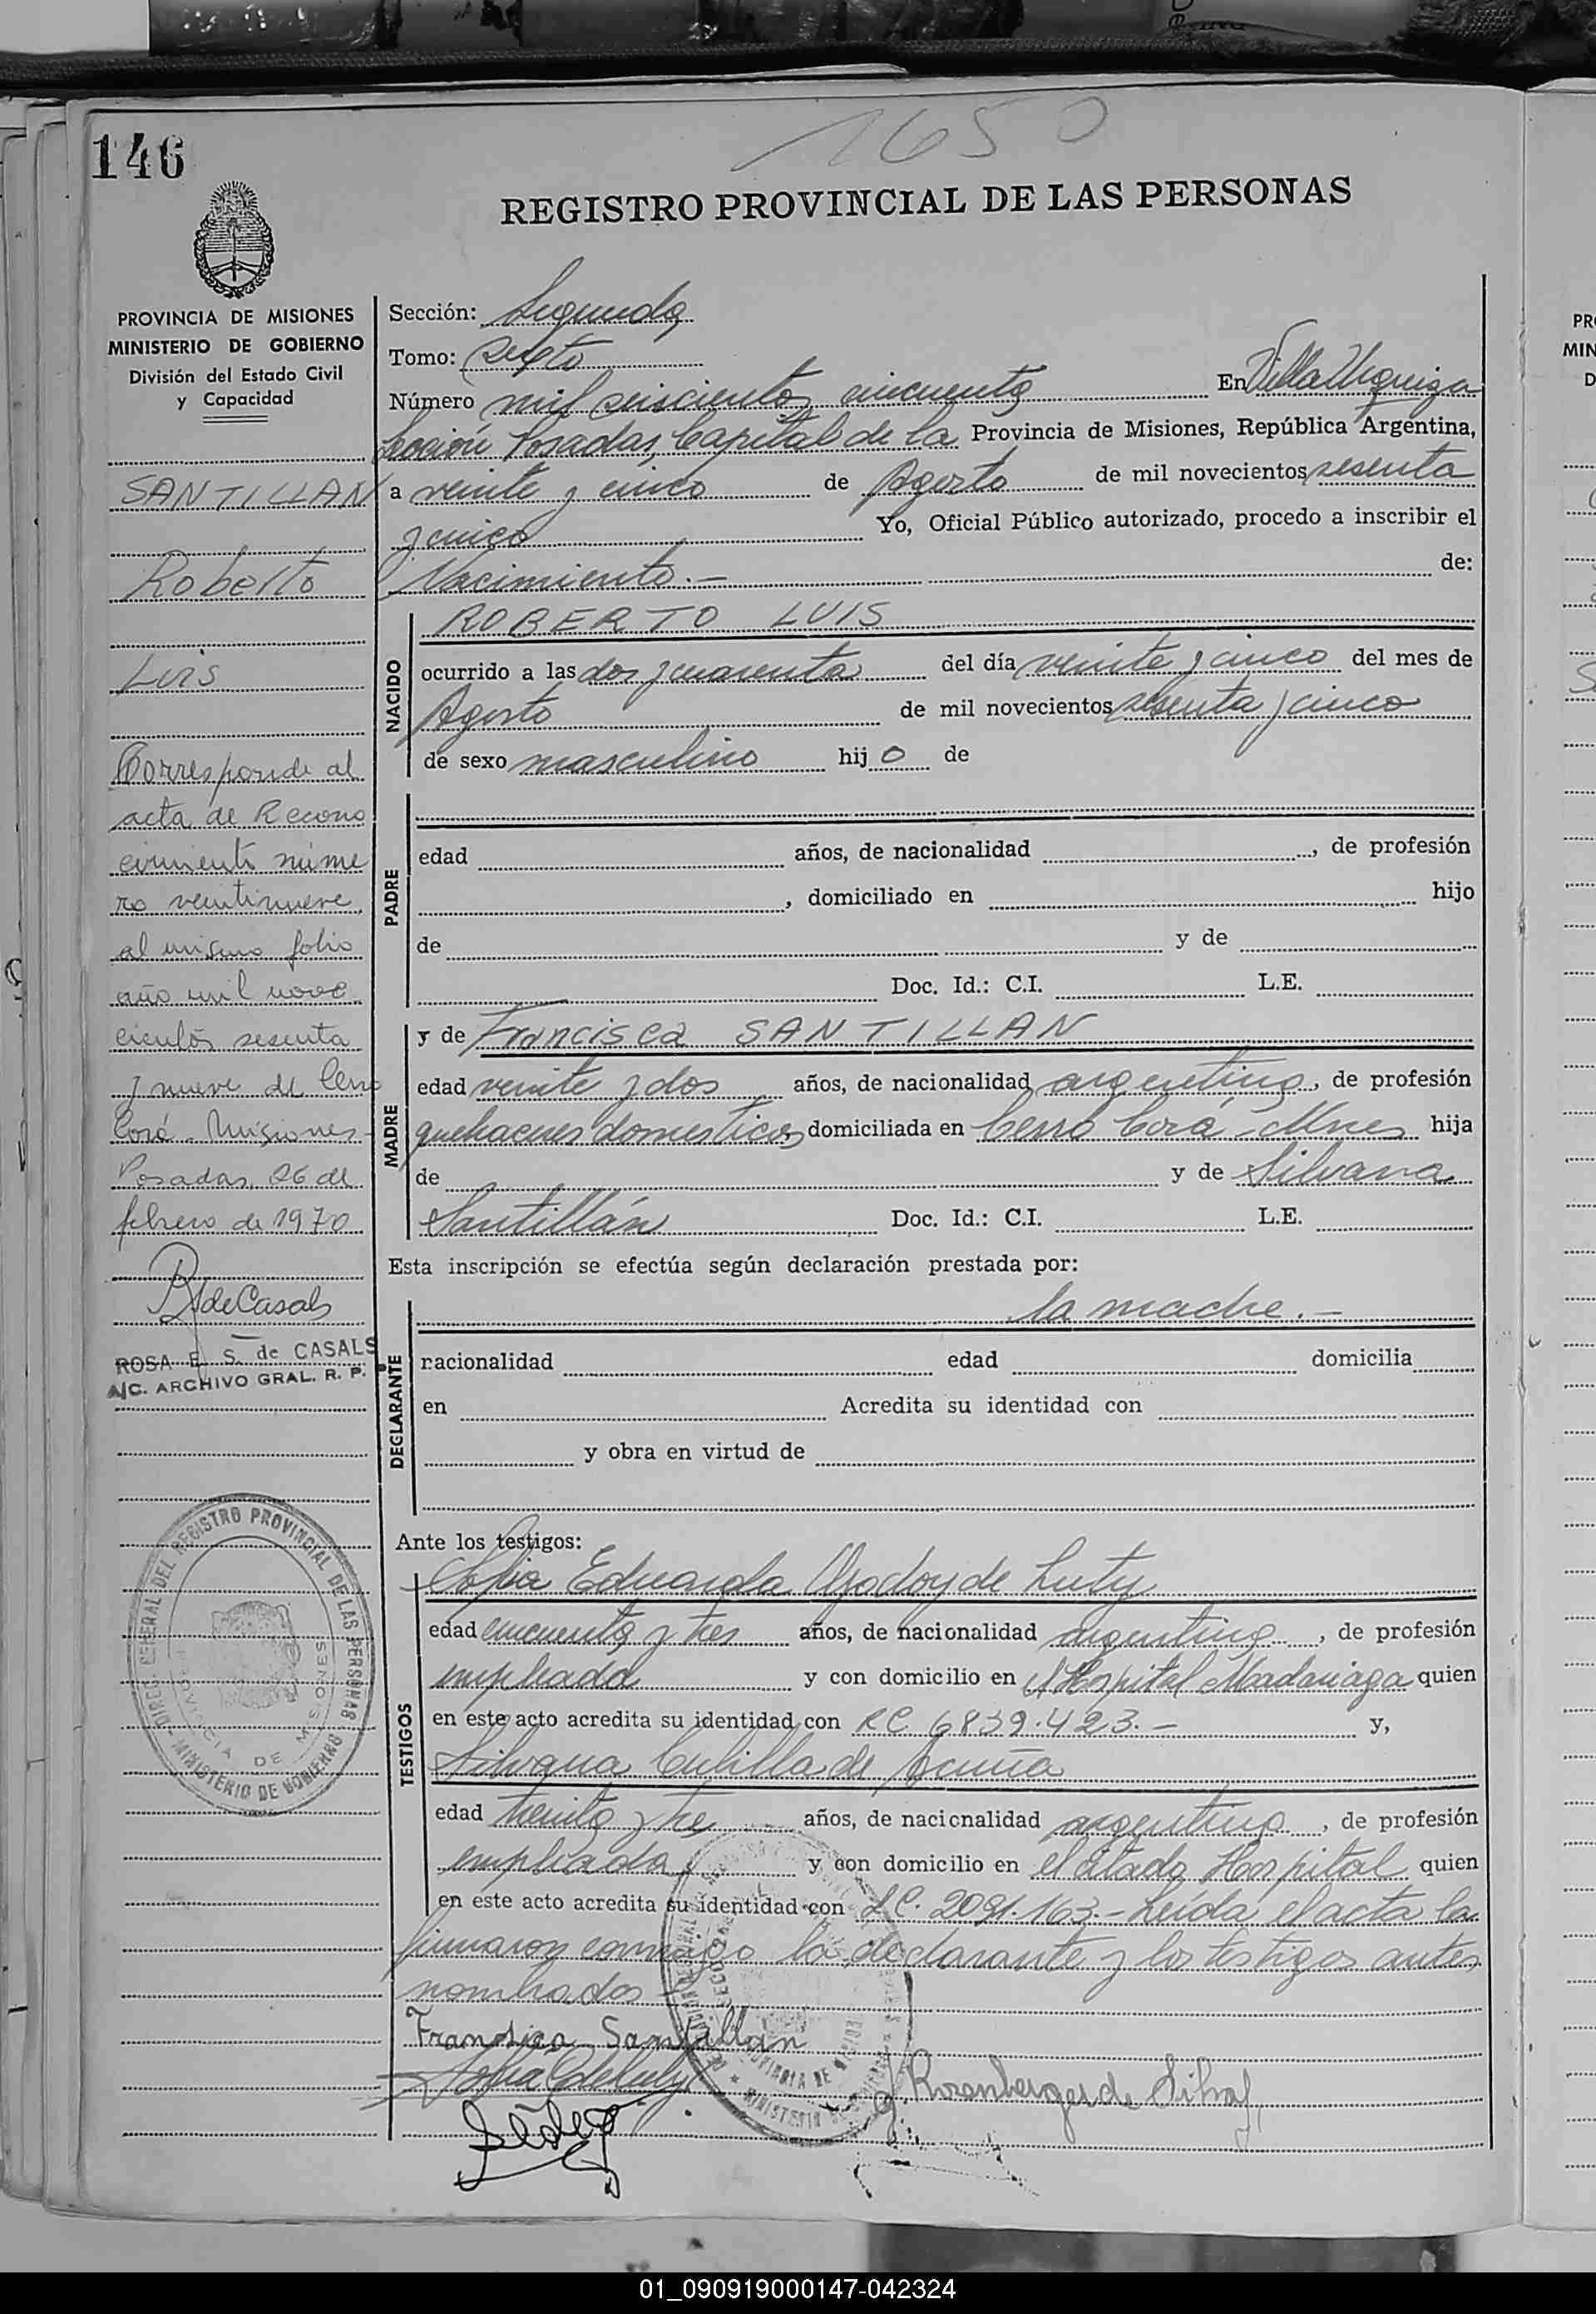 1650
146
REGISTRO PROVINCIAL DE LAS PERSONAS
PROVINCIA DE MISIONES
MINISTERIO DE GOBIERNO
División del Estado Civil
y Capacidad
SANTILLAN
Roberto
Luis
Corresponde al
acta de Recono
cimiento núme
ro veintinueve
al mismo folio
año mil nove
cientos sesenta
y nueve de Cerro
Corá - Misiones -
Posadas, 26 de
febrero de 1970
RSdeCasals
ROSA E. S. de CASALS
A/C. ARCHIVO GRAL. R. P.
DIREC. GENERAL DEL REGISTRO PROVINCIAL DE LAS PERSONAS
PROVINCIA DE MISIONES
MINISTERIO DE GOBIERNO
Sección: Segunda
Tomo: sexto
Número mil seiscientos cincuenta En Villa Urquiza
Sección Posadas, Capital de la Provincia de Misiones, República Argentina,
a veinte y cinco de Agosto de mil novecientos sesenta
y cinco Yo, Oficial Público autorizado, procedo a inscribir el
Nacimiento.- de:
NACIDO
ROBERTO LUIS
ocurrido a las dos y cuarenta del día veinte y cinco del mes de
Agosto de mil novecientos sesenta y cinco
de sexo masculino hij o de
PADRE
edad años, de nacionalidad , de profesión
, domiciliado en hijo
de y de
Doc. Id.: C.I. L.E.
MADRE
y de Francisca SANTILLAN
edad veinte y dos años, de nacionalidad argentina, de profesión
quehaceres domesticos domiciliada en Cerro Corá - Mnes hija
de y de Silvana
Santillán Doc. Id.: C.I. L.E.
Esta inscripción se efectúa según declaración prestada por:
la madre.-
DECLARANTE
nacionalidad edad domicilia
en Acredita su identidad con
y obra en virtud de
Ante los testigos:
TESTIGOS
Sofia Eduarda Godoy de Luty
edad cincuenta y tres años, de nacionalidad argentina, de profesión
empleada y con domicilio en el Hospital Madariaga quien
en este acto acredita su identidad con RC 6839.423.- y,
Silvana Cubilla de Acuña
edad treinta y tre años, de nacionalidad argentina, de profesión
empleada y con domicilio en el citado Hospital quien
en este acto acredita su identidad con L.C. 2091.163.- Leída el acta la
firmaron conmigo la declarante y los testigos antes
nombrados
Francisca Santillán
Rosenberger de Silva
01_090919000147-042324